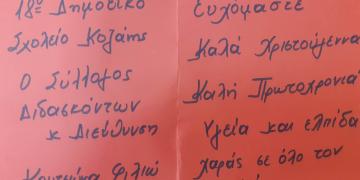 18ο Δημοτικό
Σχολείο Κοζάνης
Ο Σύλλογος
Διδασκόντων
κ Διεύθυνση
Ευχόμαστε
Καλά Χριστούγεννα
Καλή Πρωτοχρονιά
Υγεία και ελπίδα
χαράς σε όλο τον